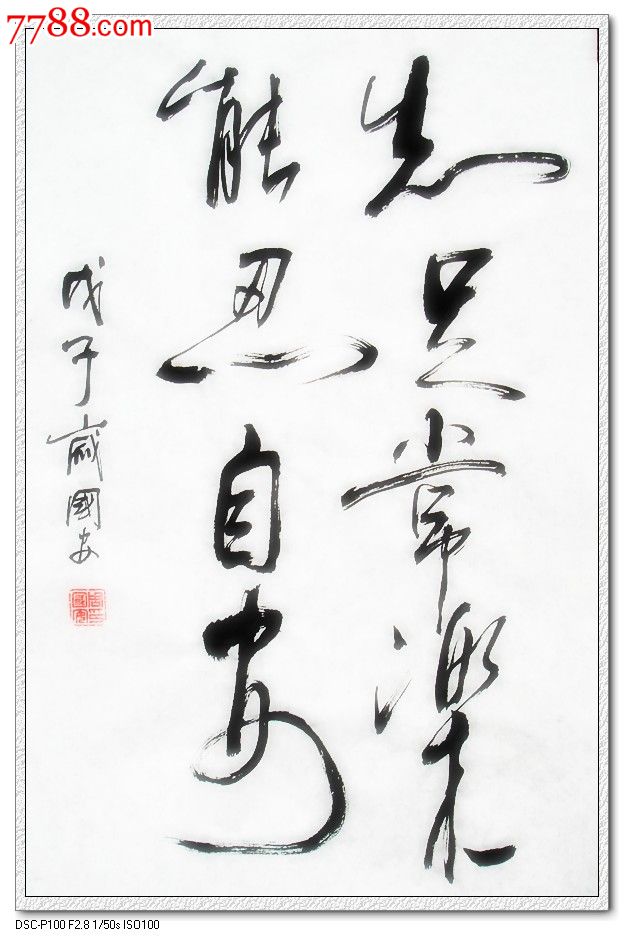 7788.com
知足常樂
能忍自安
戊子歲國安
DSC-P100 F2.8 1/50s ISO100